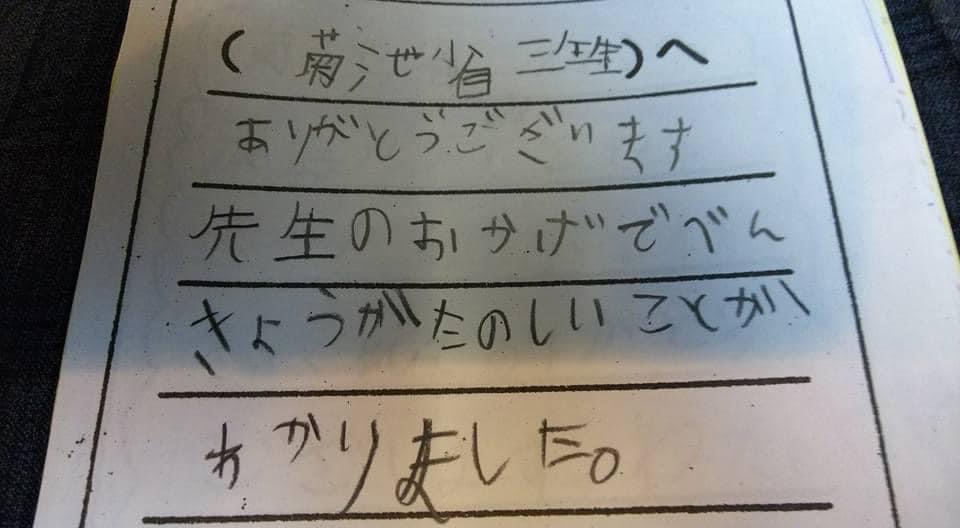 (菊池省三先生)へ
ありがとうございます
先生のおかげでべん
きょうがたのしいことが
わかりました。